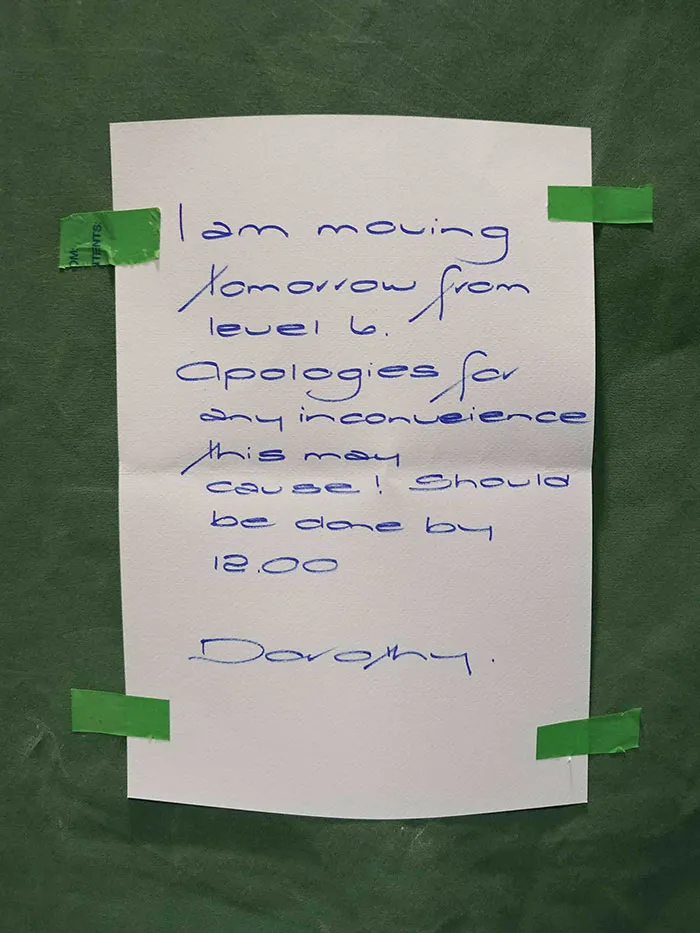 OM:
TENTS:
I am moving
tomorrow from
level 6.
Apologies for
any inconveience
this may
cause! Should
be done by
12.00
Dorothy.